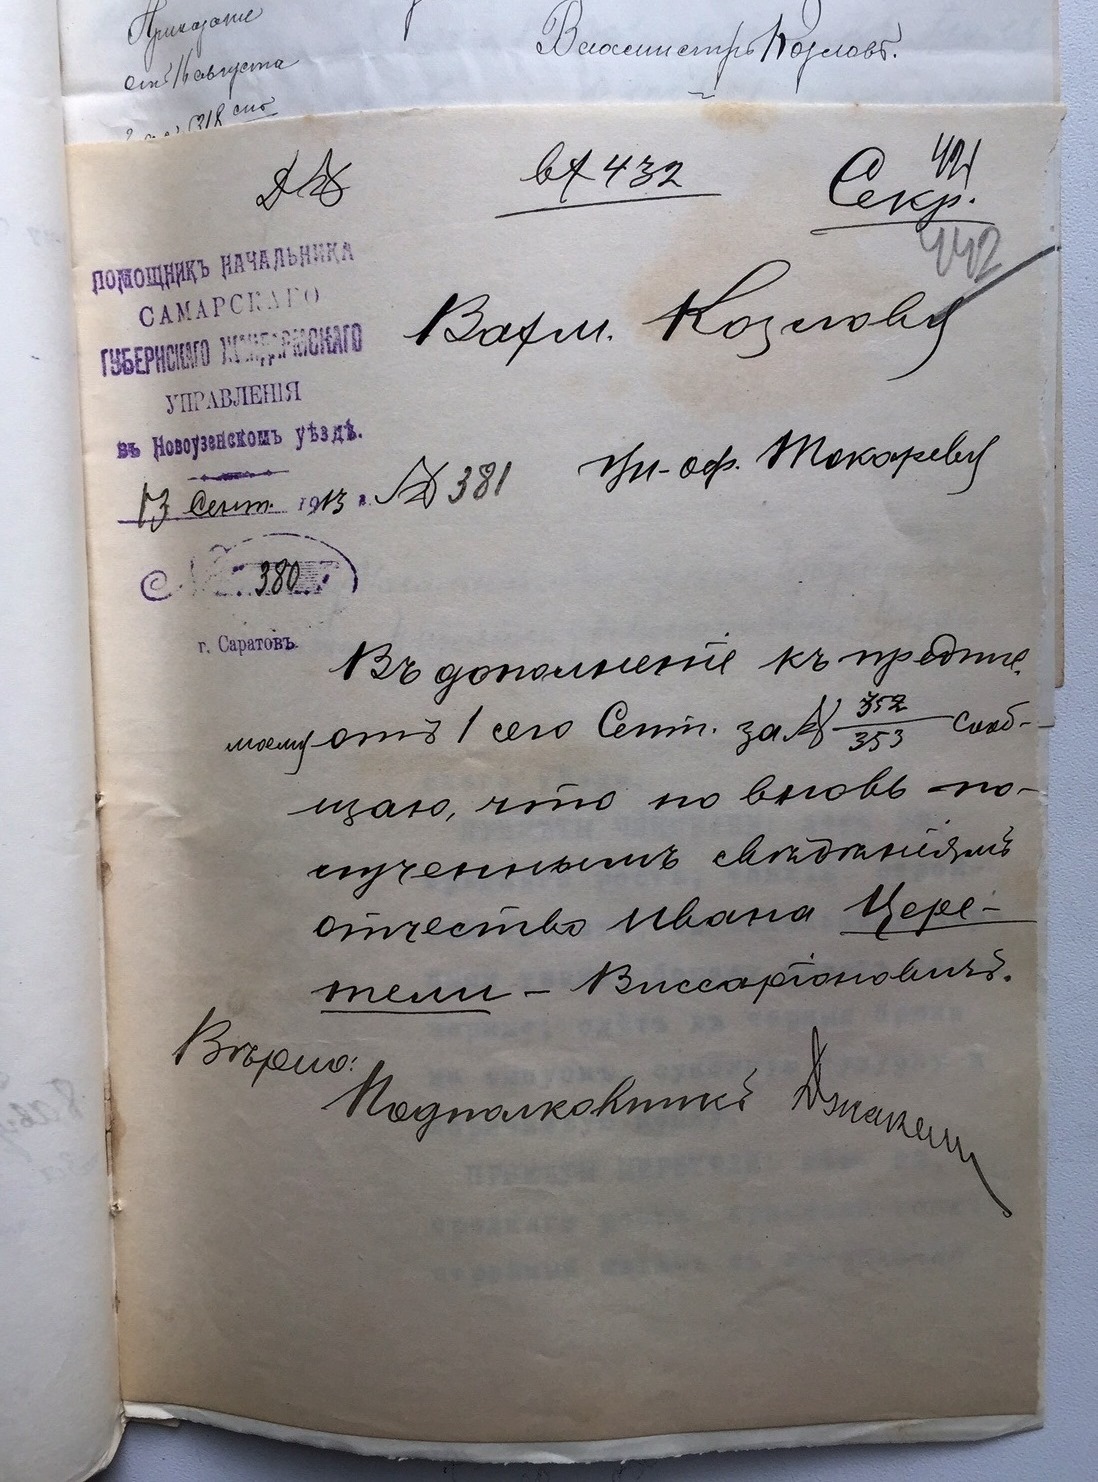 Приказание
отъ 16 августа
318
Вахмистръ Козловъ.
вх 432
421
Секр.
442
ПОМОЩНИКЪ НАЧАЛЬНИКА
САМАРСКАГО
ГУБЕРНСКАГО ЖАНДАРМСКАГО
УПРАВЛЕНІЯ
въ Новоузенскомъ уѣздѣ.
13 Сент. 1913 г. № 381
380
г. Саратовъ.
Вахм. Козлову
Ун-оф. Токареву
Въ дополненіе къ предпис.
моему отъ 1 сего Сент. за № 352/353 сооб-
щаю, что по вновь по-
лученнымъ свѣдѣніямъ
отчество Ивана Цере-
тели – Виссаріоновичъ.
Вѣрно:
Подполковникъ